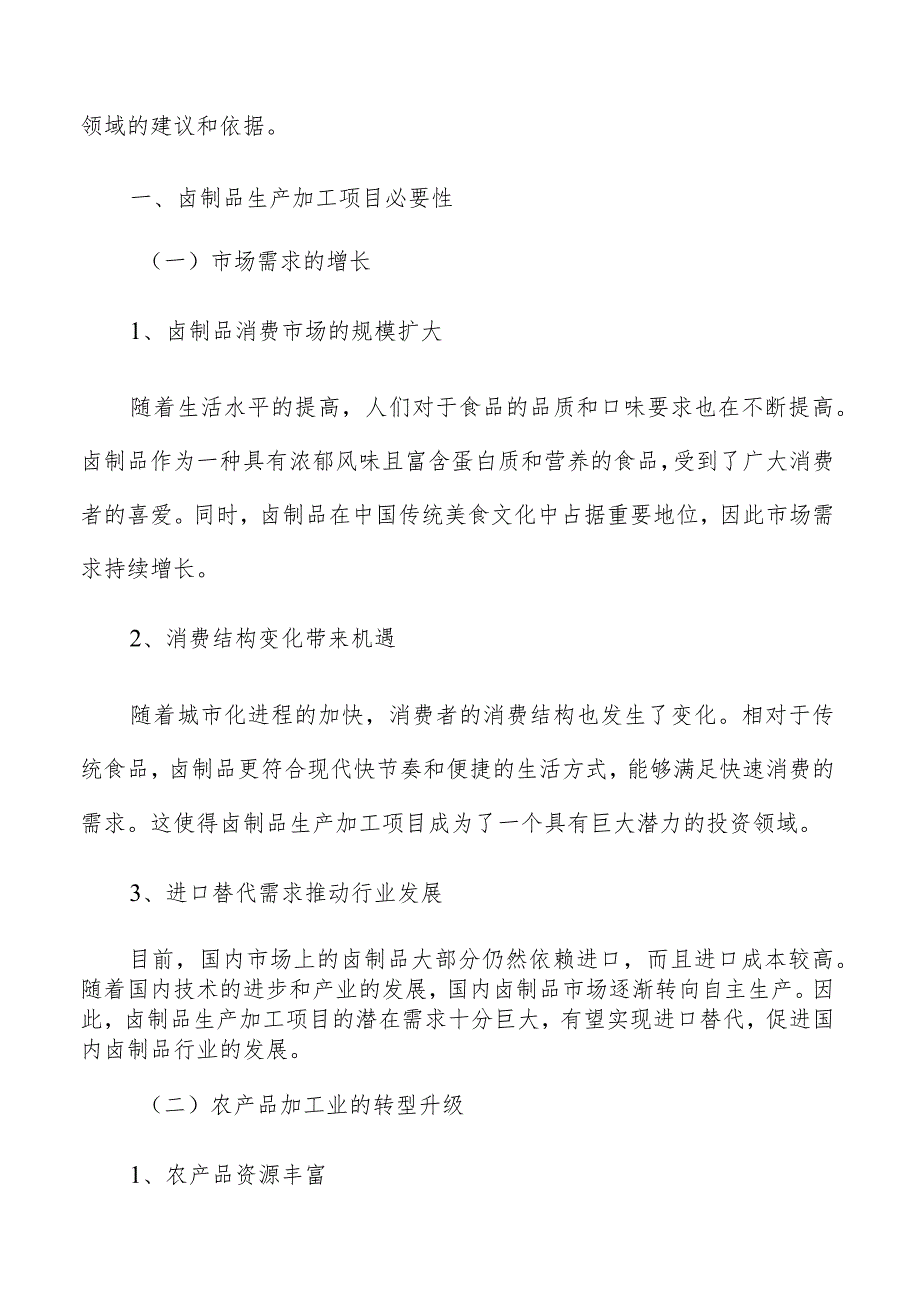 领域的建议和依据。
一、卤制品生产加工项目必要性
（一）市场需求的增长
1、卤制品消费市场的规模扩大
随着生活水平的提高，人们对于食品的品质和口味要求也在不断提高。
卤制品作为一种具有浓郁风味且富含蛋白质和营养的食品，受到了广大消费
者的喜爱。同时，卤制品在中国传统美食文化中占据重要地位，因此市场需
求持续增长。
2、消费结构变化带来机遇
随着城市化进程的加快，消费者的消费结构也发生了变化。相对于传
统食品，卤制品更符合现代快节奏和便捷的生活方式，能够满足快速消费的
需求。这使得卤制品生产加工项目成为了一个具有巨大潜力的投资领域。
3、进口替代需求推动行业发展
目前，国内市场上的卤制品大部分仍然依赖进口，而且进口成本较高。
随着国内技术的进步和产业的发展，国内卤制品市场逐渐转向自主生产。因
此，卤制品生产加工项目的潜在需求十分巨大，有望实现进口替代，促进国
内卤制品行业的发展。
（二）农产品加工业的转型升级
1、农产品资源丰富